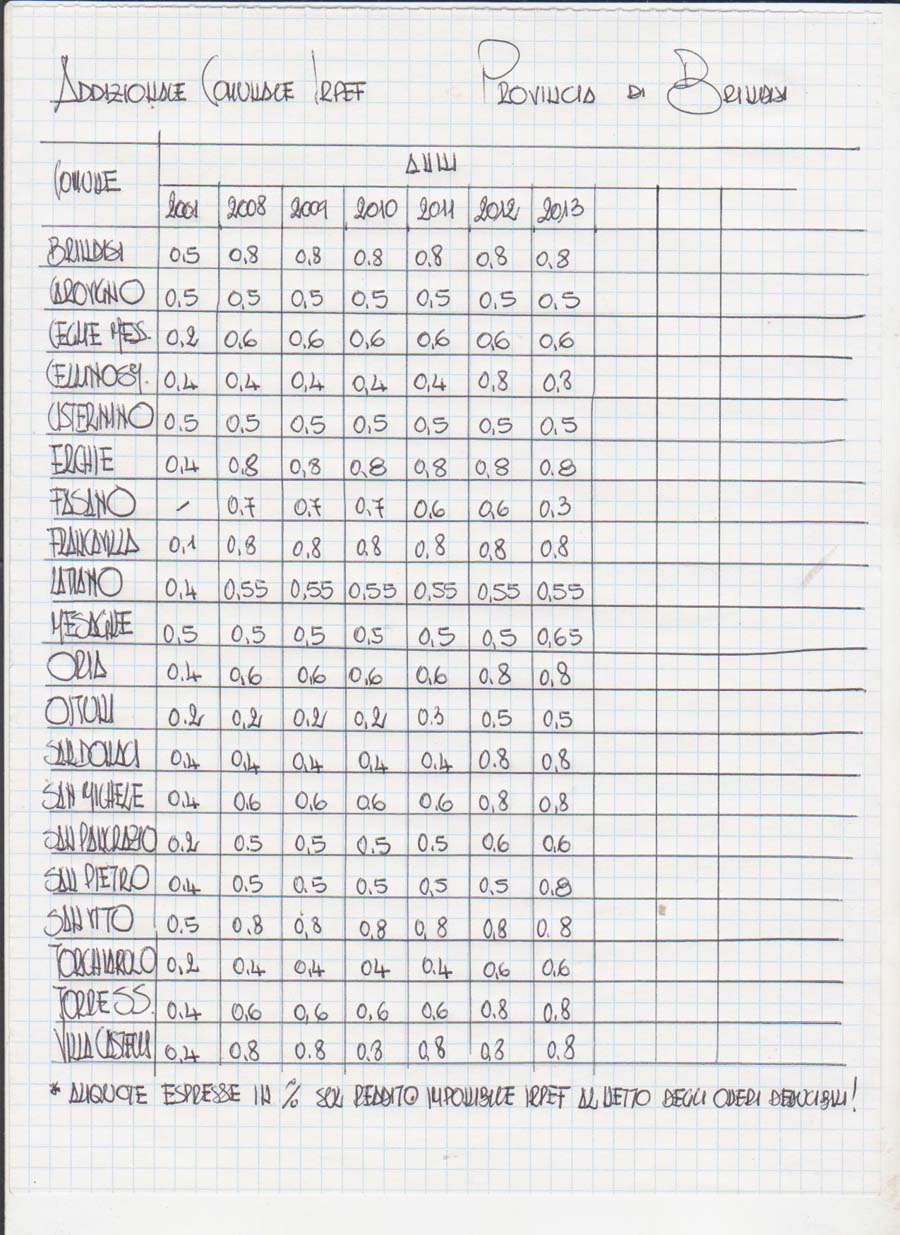 Addizionale Comunale Irpef Provincia di Brindisi
Comune Anni
2001 2008 2009 2010 2011 2012 2013
Brindisi 0.5 0.8 0.8 0.8 0.8 0.8 0.8
Carovigno 0.5 0,5 0.5 0,5 0.5 0.5 0.5
Ceglie Mes. 0.2 0.6 0.6 0,6 0.6 0.6 0.6
Cellino S.M. 0.4 0.4 0.4 0,4 0.4 0.8 0.8
Cisternino 0.5 0.5 0.5 0.5 0.5 0.5 0.5
Erchie 0.4 0.8 0,8 0.8 0.8 0.8 0.8
Fasano - 0.7 0.7 0.7 0.6 0.6 0.3
Francavilla 0.1 0.8 0.8 0.8 0.8 0.8 0.8
Latiano 0.4 0,55 0,55 0,55 0,55 0,55 0,55
Mesagne 0.5 0.5 0.5 0.5 0.5 0.5 0,65
Oria 0.4 0,6 0,6 0,6 0.6 0.8 0,8
Ostuni 0.2 0,2 0.2 0,2 0.3 0.5 0,5
San Donaci 0.4 0.4 0.4 0.4 0.4 0.8 0,8
San Michele 0.4 0.6 0,6 0.6 0.6 0,8 0,8
San Pancrazio 0.2 0.5 0,5 0.5 0.5 0.6 0.6
San Pietro 0.4 0.5 0.5 0.5 0,5 0.5 0.8
San Vito 0.5 0.8 0,8 0.8 0,8 0.8 0.8
Torchiarolo 0,2 0.4 0,4 04 0.4 0,6 0.6
Torre S.S. 0.4 0,6 0,6 0,6 0,6 0.8 0,8
Villa Castelli 0.4 0.8 0.8 0.8 0.8 0.8 0.8
* Aliquote espresse in % sul reddito imponibile IRPEF al netto degli oneri deducibili!